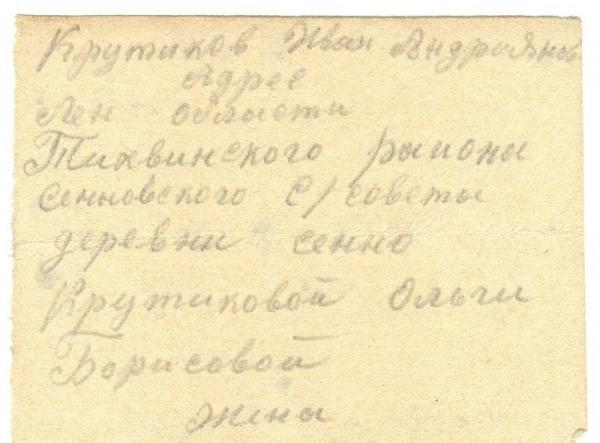 Крутиков Иван Андриянов
Адрес
Лен области
Тихвинского района
Сенновского С/совета
деревни сенно
Крутиковой Ольги
Борисовой
жена